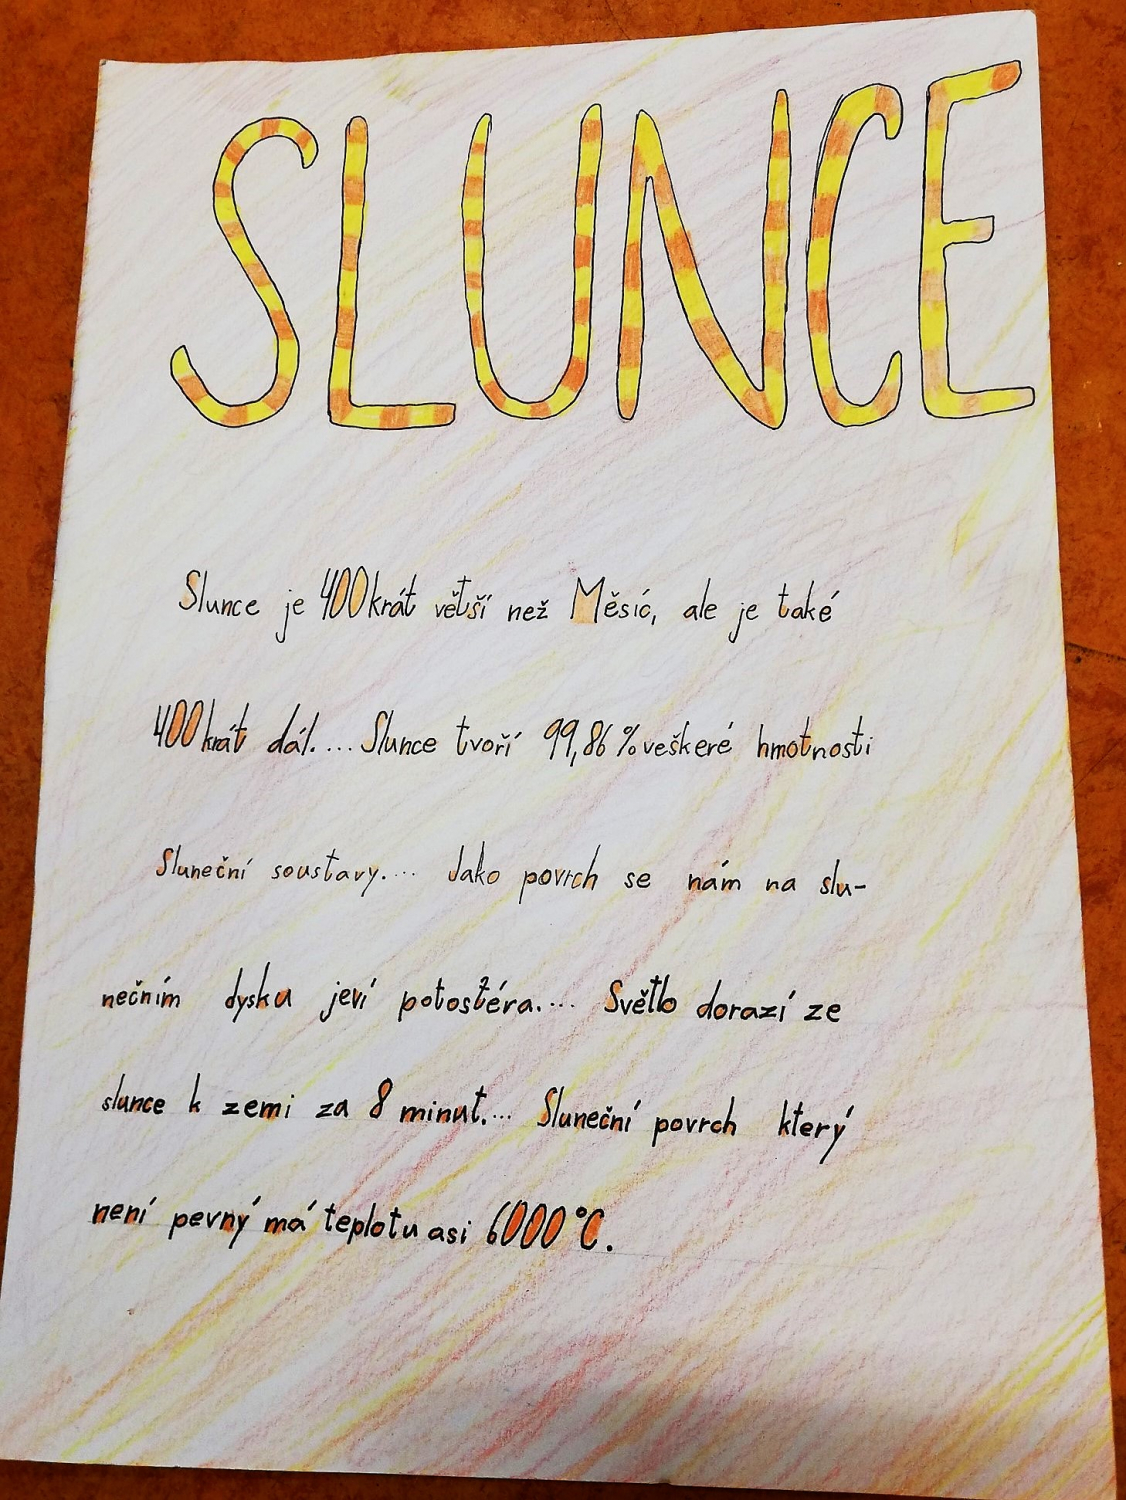 SLUNCE
Slunce je 400krát větší než Měsíc, ale je také
400krát dál.... Slunce tvoří 99,86 % veškeré hmotnosti
Sluneční soustavy.... Jako povrch se nám na slu-
nečním dysku jeví potosféra.... Světlo dorazí ze
slunce k zemi za 8 minut.... Sluneční povrch který
není pevný má teplotu asi 6000°C.